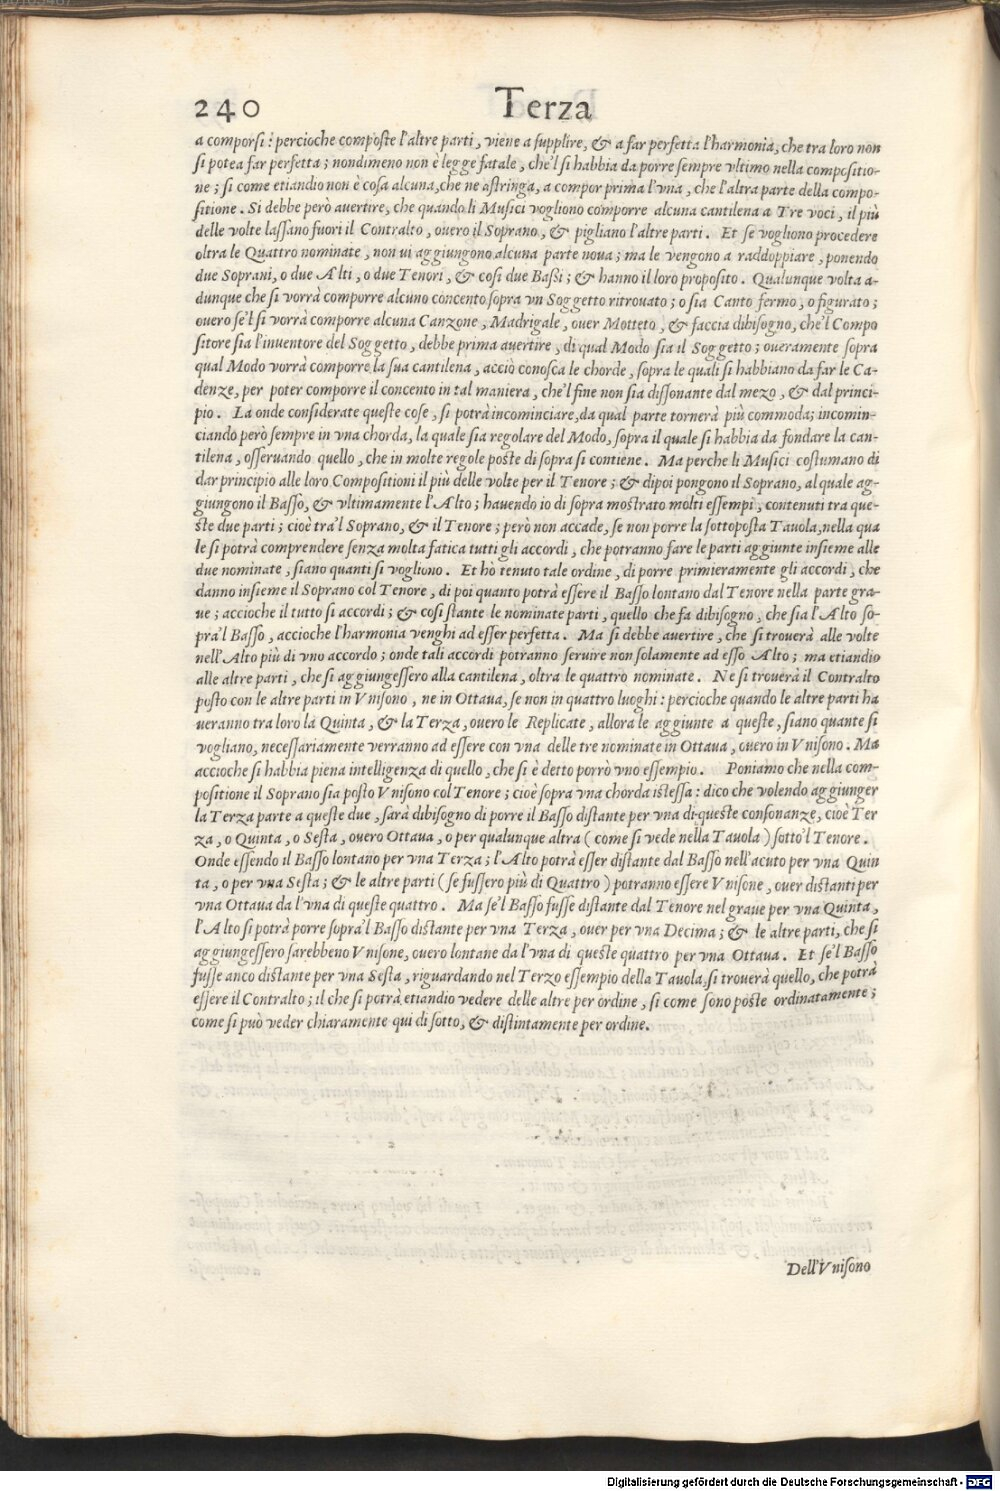 240 Terza
a comporsi: percioche composte l'altre parti, viene a supplire, & a far perfetta l'harmonia, che tra loro non
si potea far perfetta; nondimeno non è legge fatale, che'l si habbia da porre sempre vltimo nella compositio-
ne; si come etiandio non è cosa alcuna, che ne astringa, a compor prima l'vna, che l'altra parte della compo-
sitione. Si debbe però auertire, che quando li Musici vogliono comporre alcuna cantilena a Tre voci, il più
delle volte lassano fuori il Contralto, ouero il Soprano, & pigliano l'altre parti. Et se vogliono procedere
oltra le Quattro nominate, non vi aggiungono alcuna parte noua; ma le vengono a raddoppiare, ponendo
due Soprani, o due Alti, o due Tenori, & cosi due Bassi; & hanno il loro proposito. Qualunque volta a-
dunque che si vorrà comporre alcuno concento sopra vn Soggetto ritrouato; o sia Canto fermo, o figurato;
ouero se'l si vorrà comporre alcuna Canzone, Madrigale, ouer Motteto, & faccia dibisogno, che'l Compo
sitore sia l'inuentore del Soggetto, debbe prima auertire, di qual Modo sia il Soggetto; oueramente sopra
qual Modo vorrà comporre la sua cantilena, acciò conosca le chorde, sopra le quali si habbiano da far le Ca-
denze, per poter comporre il concento in tal maniera, che'l fine non sia dissonante dal mezo, & dal princi-
pio. La onde considerate queste cose, si potrà incominciare, da qual parte tornerà più commoda; incomin-
ciando però sempre in vna chorda, la quale sia regolare del Modo, sopra il quale si habbia da fondare la can-
tilena, osseruando quello, che in molte regole poste di sopra si contiene. Ma perche li Musici costumano di
dar principio alle loro Compositioni il più delle volte per il Tenore; & dipoi pongono il Soprano, al quale ag-
giungono il Basso, & vltimamente l'Alto; hauendo io di sopra mostrato molti essempi, contenuti tra que-
ste due parti; cioè tra'l Soprano, & il Tenore; però non accade, se non porre la sottoposta Tauola, nella qua
le si potrà comprendere senza molta fatica tutti gli accordi, che potranno fare le parti aggiunte insieme alle
due nominate, siano quanti si vogliono. Et hò tenuto tale ordine, di porre primieramente gli accordi, che
danno insieme il Soprano col Tenore, di poi quanto potrà essere il Basso lontano dal Tenore nella parte gra-
ue; accioche il tutto si accordi; & cosi stante le nominate parti, quello che fa dibisogno, che sia l'Alto so-
pra'l Basso, accioche l'harmonia venghi ad esser perfetta. Ma si debbe auertire, che si trouerà alle volte
nell'Alto più di vno accordo; onde tali accordi potranno seruire non solamente ad esso Alto; ma etiandio
alle altre parti, che si aggiungessero alla cantilena, oltra le quattro nominate. Ne si trouerà il Contralto
posto con le altre parti in Vnisono, ne in Ottaua, se non in quattro luoghi: percioche quando le altre parti ha
ueranno tra loro la Quinta, & la Terza, ouero le Replicate, allora le aggiunte a queste, siano quante si
vogliano, necessariamente verranno ad essere con vna delle tre nominate in Ottaua, ouero in Vnisono. Ma
accioche si habbia piena intelligenza di quello, che si è detto porrò vno essempio. Poniamo che nella com-
positione il Soprano sia posto Vnisono col Tenore; cioè sopra vna chorda istessa: dico che volendo aggiunger
la Terza parte a queste due, sarà dibisogno di porre il Basso distante per vna di queste consonanze, cioè Ter
za, o Quinta, o Sesta, ouero Ottaua, o per qualunque altra (come si vede nella Tauola) sotto'l Tenore.
Onde essendo il Basso lontano per vna Terza; l'Alto potrà esser distante dal Basso nell'acuto per vna Quin
ta, o per vna Sesta; & le altre parti (se fussero più di Quattro) potranno essere Vnisone, ouer distanti per
vna Ottaua da l'vna di queste quattro. Ma se'l Basso fusse distante dal Tenore nel graue per vna Quinta,
l'Alto si potrà porre sopra'l Basso distante per vna Terza, ouer per vna Decima; & le altre parti, che si
aggiungessero sarebbeno Vnisone, ouero lontane da l'vna di queste quattro per vna Ottaua. Et se'l Basso
fusse anco distante per vna Sesta, riguardando nel Terzo essempio della Tauola, si trouerà quello, che potrà
essere il Contralto; il che si potrà etiandio vedere delle altre per ordine, si come sono poste ordinatamente;
come si può veder chiaramente qui di sotto, & distintamente per ordine.
Dell'Vnisono
Digitalisierung gefördert durch die Deutsche Forschungsgemeinschaft - DFG